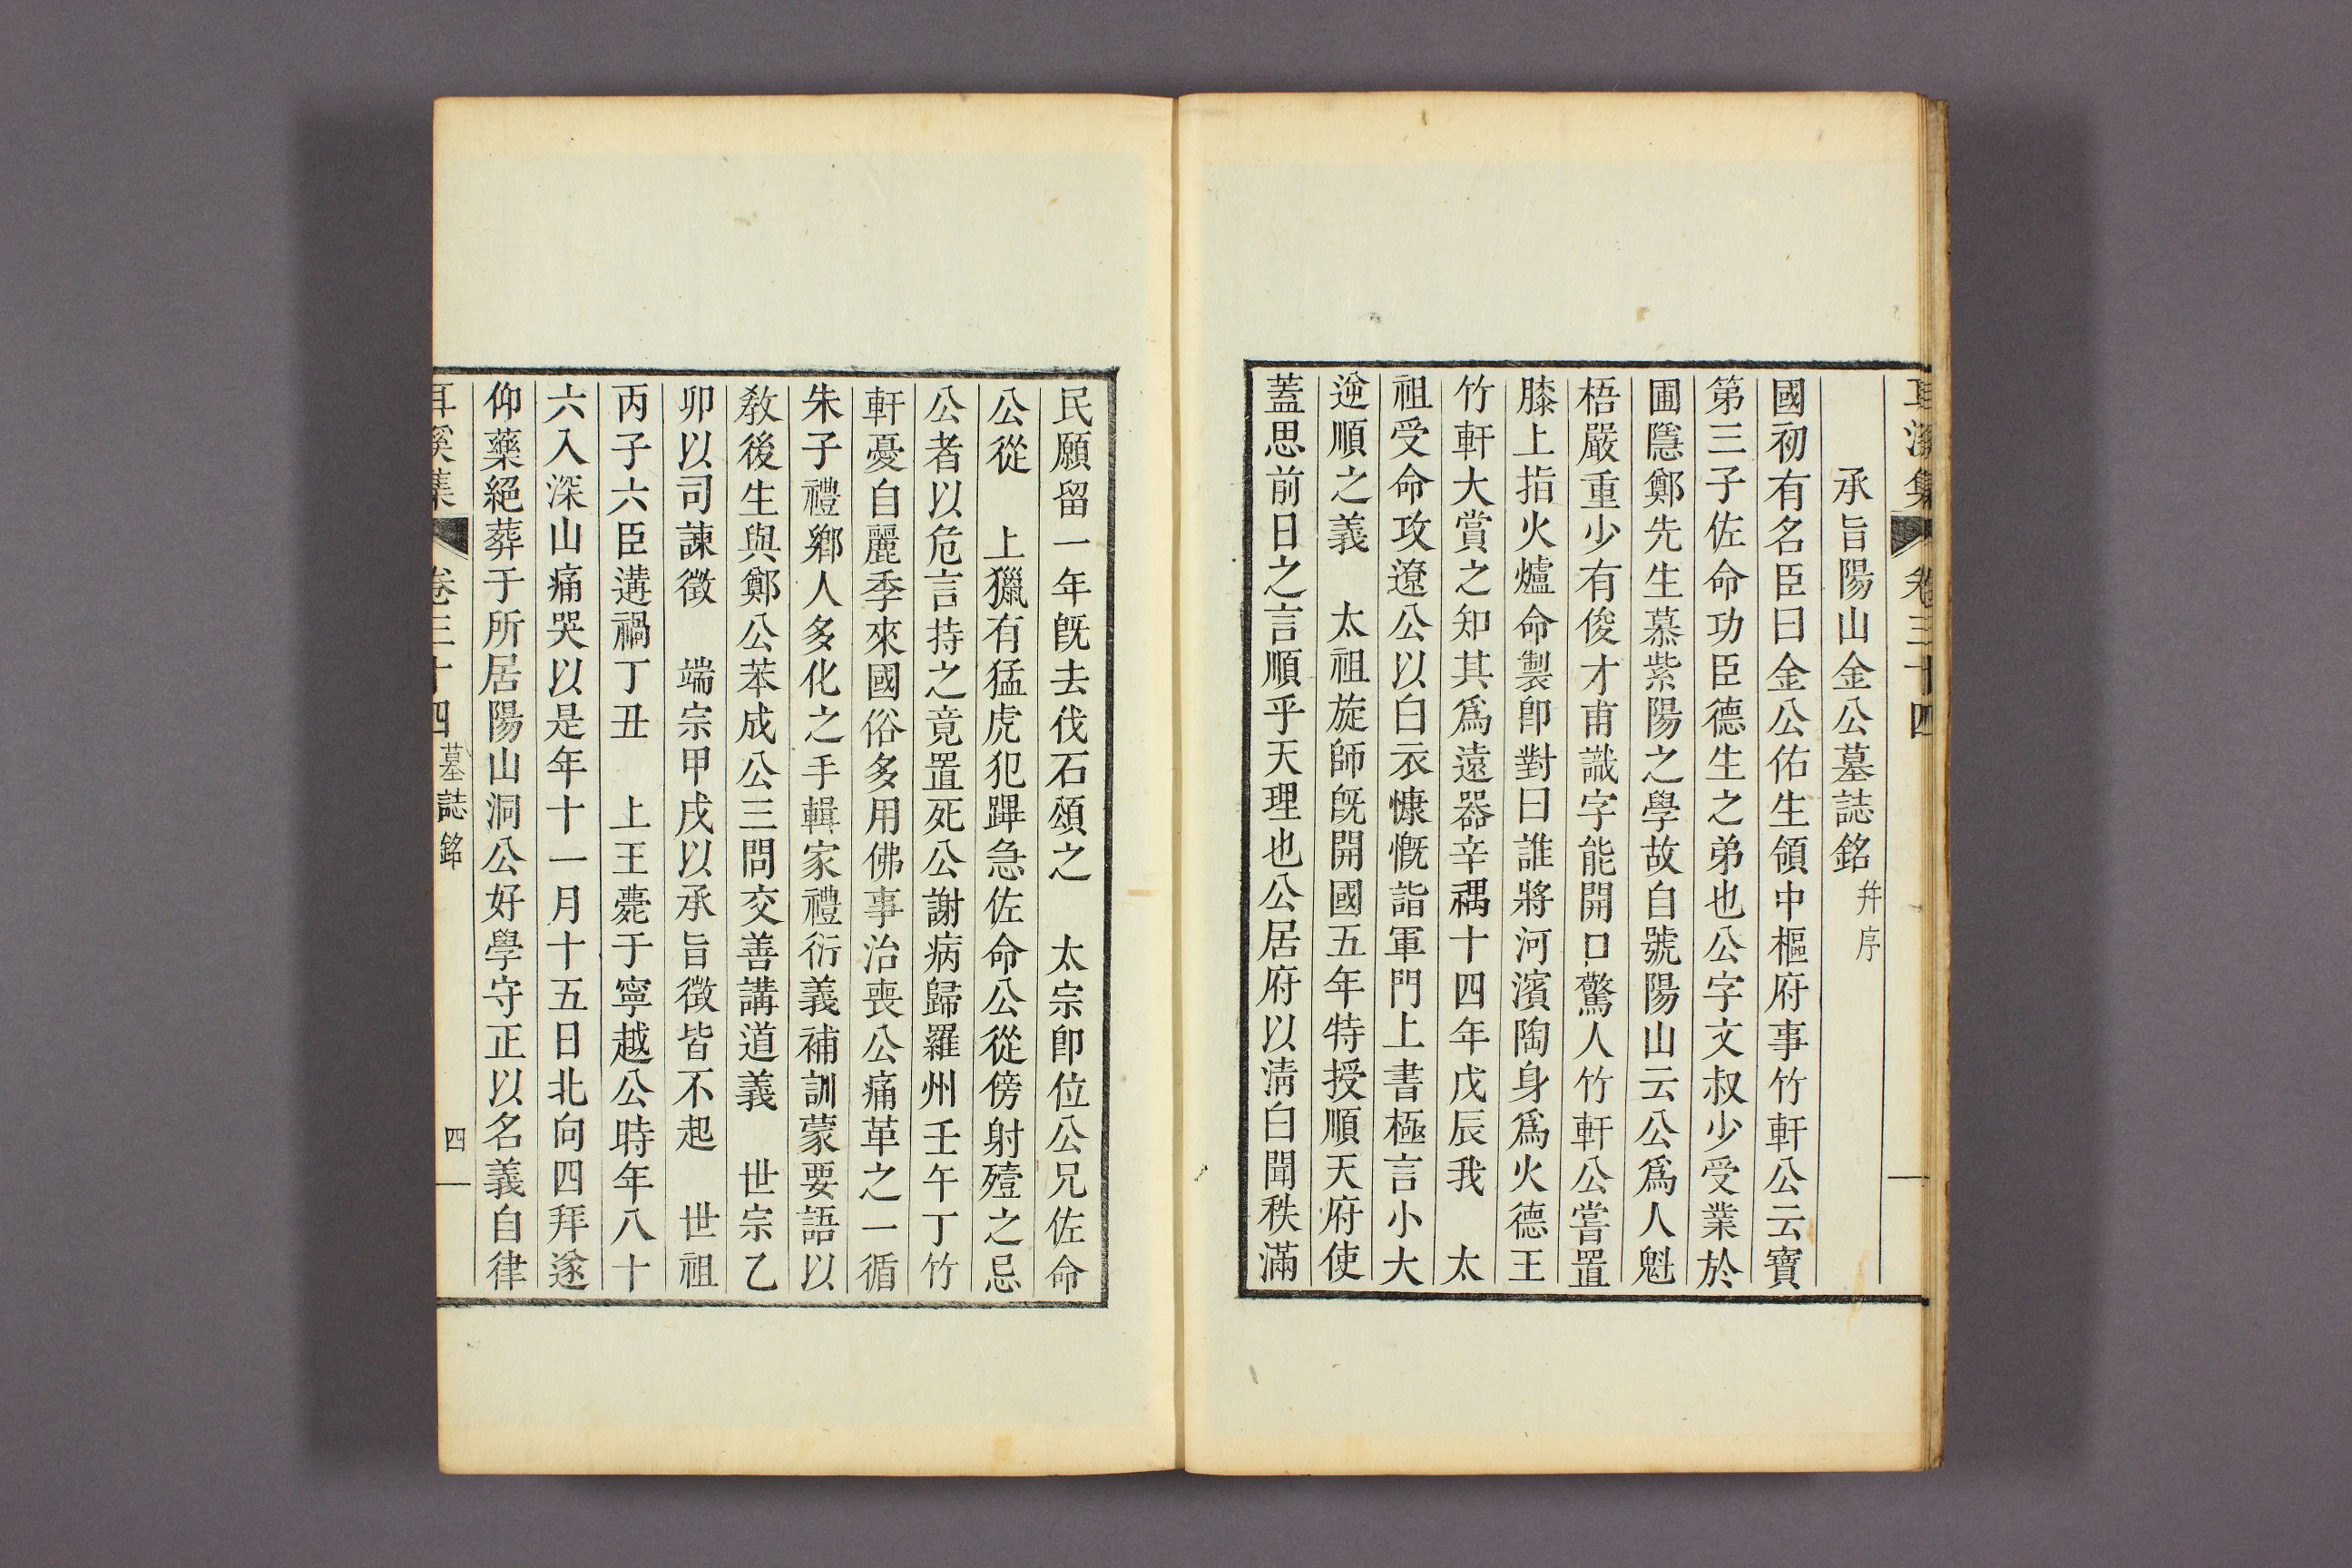 耳溪集 卷三十四
承旨陽山金公墓誌銘 幷序
國初有名臣曰金公佑生領中樞府事竹軒公云寶
第三子佐命功臣德生之弟也公字文叔少受業於
圃隱鄭先生慕紫陽之學故自號陽山云公爲人魁
梧嚴重少有俊才甫識字能開口驚人竹軒公嘗置
膝上指火爐命製卽對曰誰將河濱陶身爲火德王
竹軒大賞之知其爲遠器辛禑十四年戊辰我 太
祖受命攻遼公以白衣慷慨詣軍門上書極言小大
逆順之義 太祖旋師旣開國五年特授順天府使
蓋思前日之言順乎天理也公居府以淸白聞秩滿
民願留一年旣去伐石頌之 太宗卽位公兄佐命
公從 上獵有猛虎犯蹕急佐命公從傍射殪之忌
公者以危言持之竟置死公謝病歸羅州壬午丁竹
軒憂自麗季來國俗多用佛事治喪公痛革之一循
朱子禮鄕人多化之手輯家禮衍義補訓蒙要語以
敎後生與鄭公苯成公三問交善講道義 世宗乙
卯以司諫徵 端宗甲戌以承旨徵皆不起 世祖
丙子六臣遘禍丁丑 上王薨于寧越公時年八十
六入深山痛哭以是年十一月十五日北向四拜遂
仰藥絕葬于所居陽山洞公好學守正以名義自律
耳溪集 卷三十四 墓誌銘 四